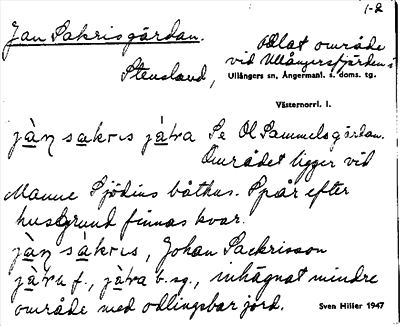 1-2
Jan Sakrisgårdan.
Odlat område
vid Ullångersfjärden i
Stensland,
Ullångers sn, Ångermanl. s. doms. tg.
Västernorrl. l.
jàn sakrıs jàꞛa Se Ol Sammelsgårdan.
Området ligger vid
Manne Sjödins båthus. Spår efter
husgrund finnas kvar.
jàn sàkrıs, Johan Sackrisson
f., b. sg., inhägnat mindre
område med odlingsbar jord.
Sven Hiller 1947